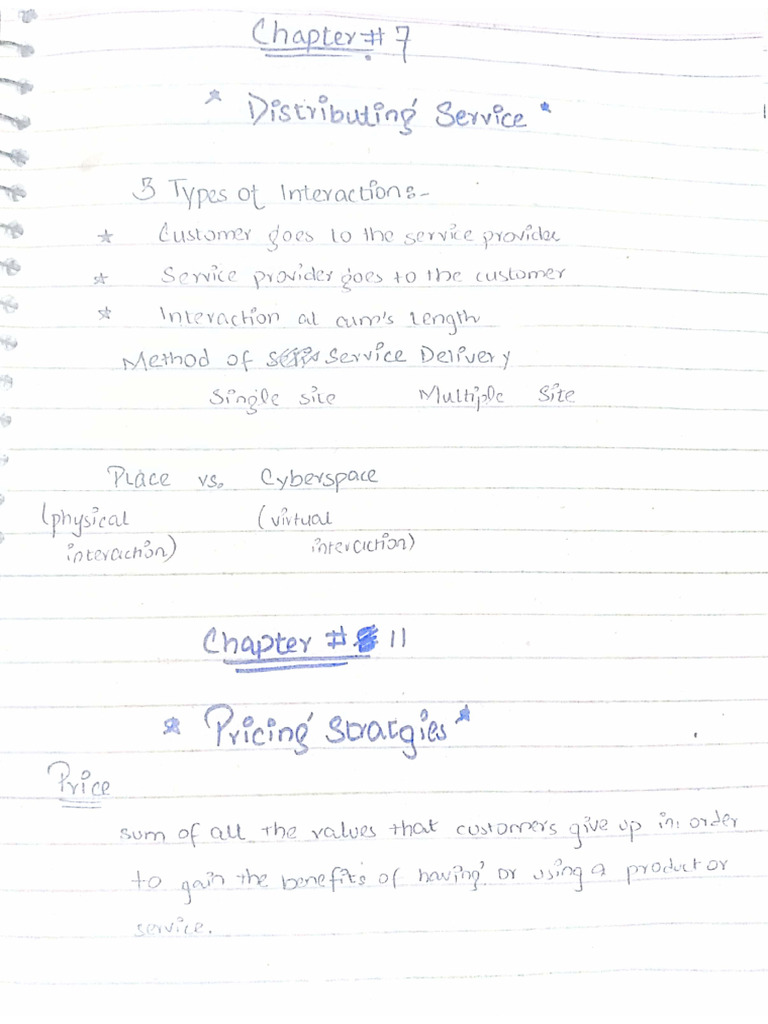 Chapter # 7
* Distributing Service *
3 Types of Interactions:-
* Customer goes to the service provider
* Service provider goes to the customer
* Interaction at arm's length
Method of Service Delivery
Single site Multiple Site
Place vs. Cyberspace
(physical (virtual
interaction) interaction)
Chapter # 11
* Pricing Stratgies *
Price
sum of all the values that customers give up in order
to gain the benefits of having or using a product or
service.